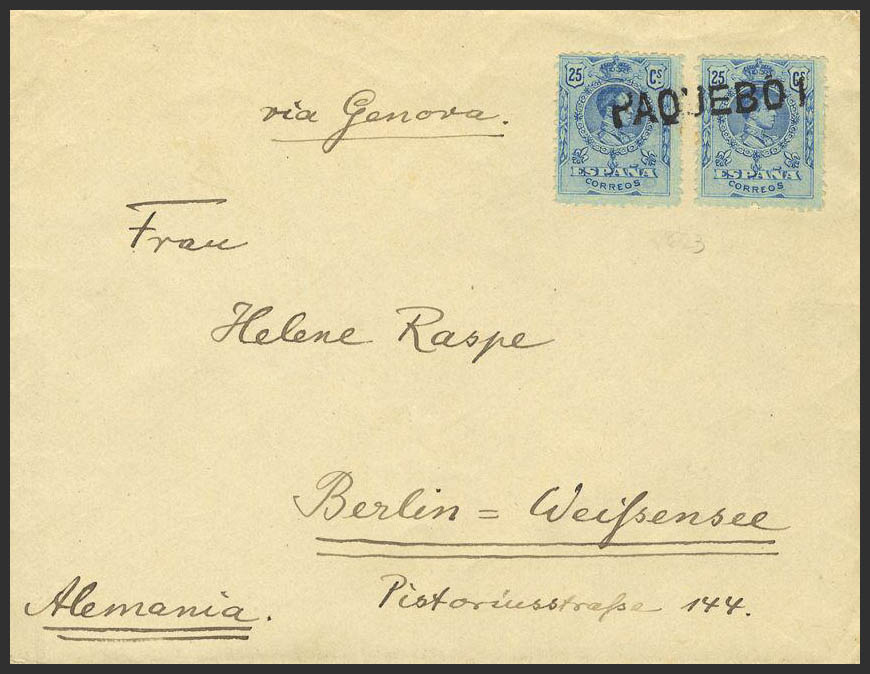 25 Cs 25 Cs
PAQUEBOT
ESPAÑA ESPAÑA
CORREOS CORREOS
via Genova.
Frau
Helene Raspe
Berlin = Weißensee
Pistoriusstraße 144.
Alemania.